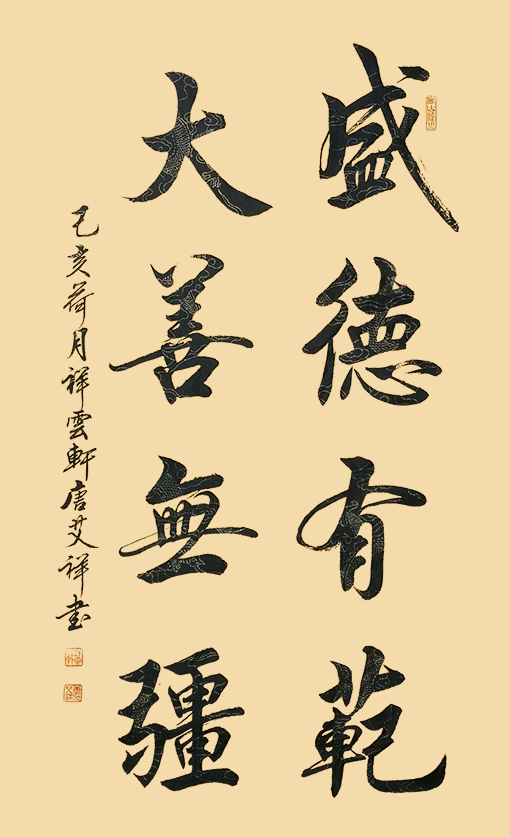 盛德有範
大善無疆
己亥荷月祥雲軒唐艾祥书